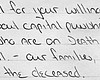 l for your willing
out capital punish
who are on Death
l. – our families,
the deceased.